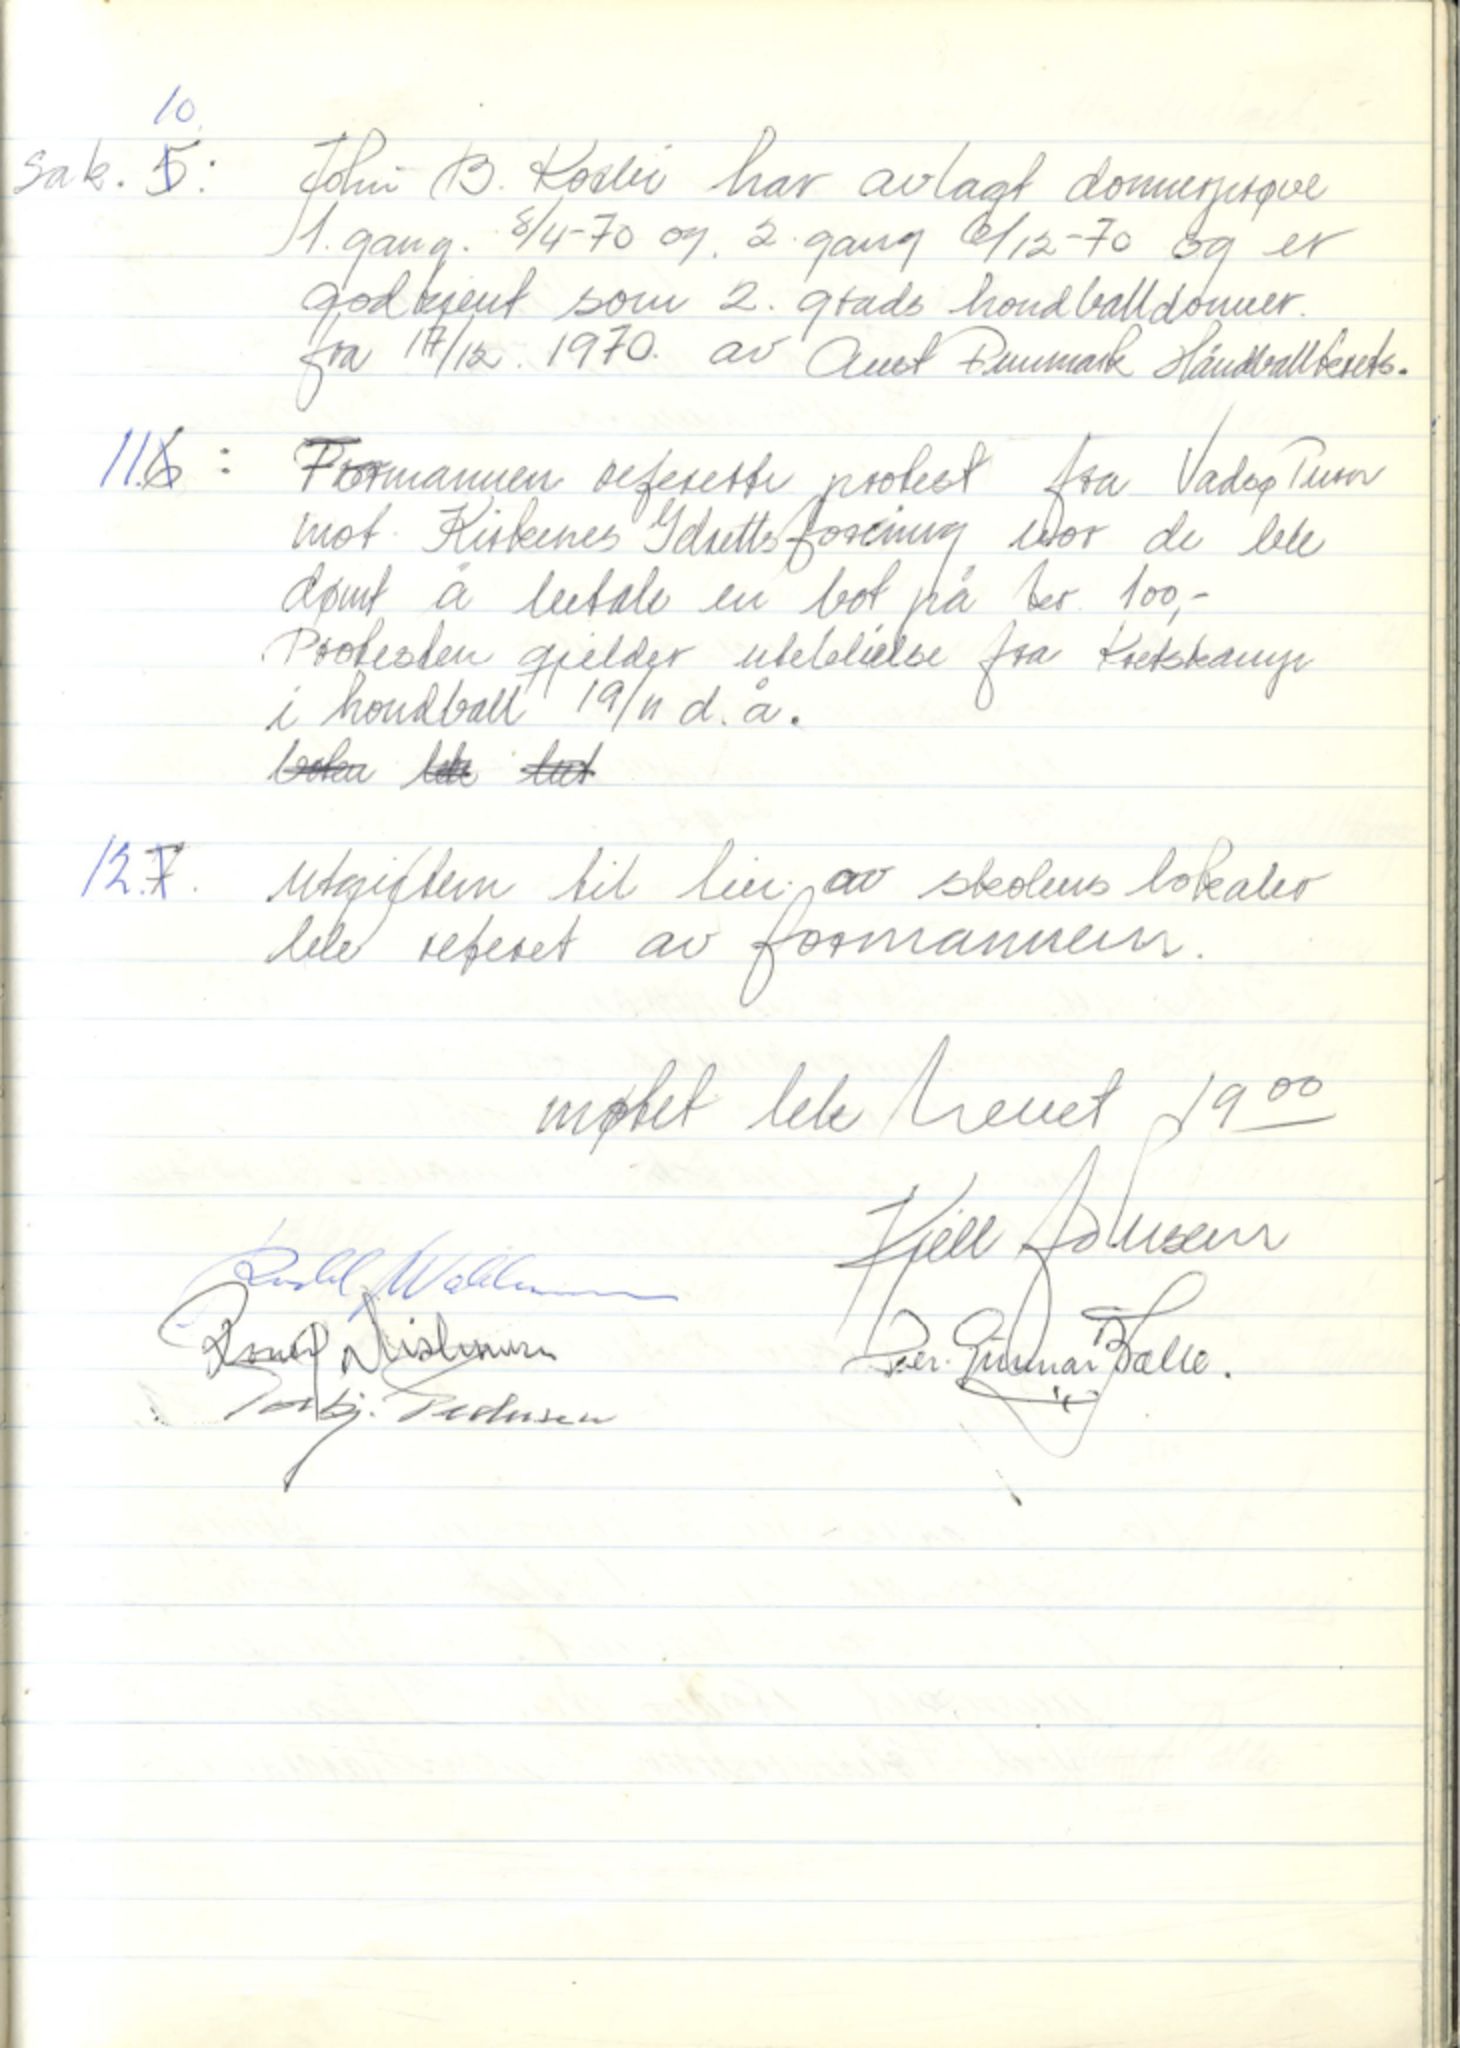 10.
Sak. 5: John B. Koski har avlagt dommerprøve
1. gang. 8/4-70 og. 2. gang 6/12-70 og er
godkjent som 2. grads hondballdommer.
fra 17/12. 1970. av Aust Finnmark Håndballkrets.
11.6: Formannen refererte protest fra Vadsø Turn
mot Kirkenes Idrettsforening hvor de ble
dømt å betale en bot på kr. 100,-
Protesten gjelder uteblielse fra Kretskamp
i hondball 19/11 d.å.
boten ble bet
12.7. Utgiftern til leie av skolens lokaler
ble referet av formannen.
møtet ble hevet 19 00
Kjell Johnsen
Per. Gunnar Balle.
Torbj. Pedersen